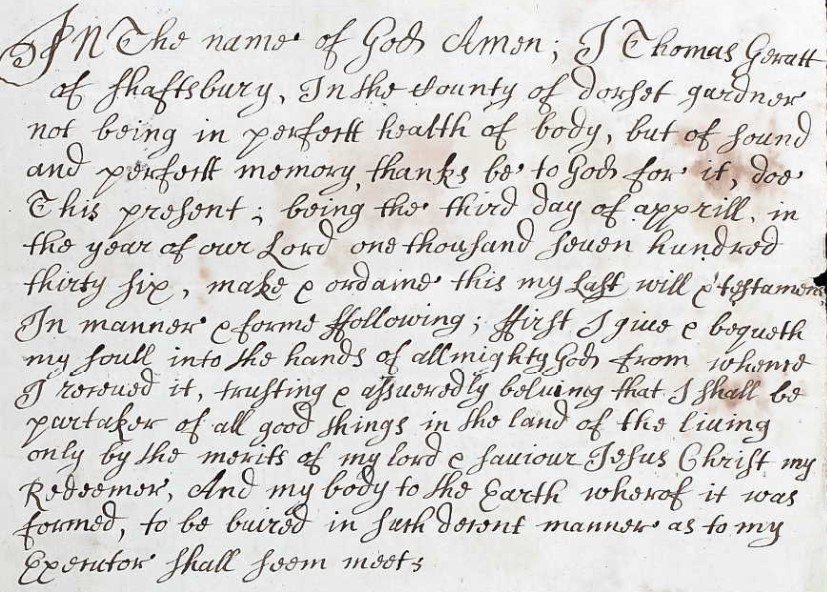 In The name of God Amen; I Thomas Geratt
of shaftsbury, In the County of dorset gardner
not being in perfectt health of body, but of sound
and perfectt memory, thanks be to God for it, doe
This present; being the third day of apprill, in
the year of our Lord one thousand seven hundred
thirty six, make & ordaine this my Last will & testamen
In manner & forme ffollowing; ffirst I give & begueth
my soull into the hands of allmighty God from whence
I receued it, trusting & assueredly beluing that I shall be
partaker of all good things in the land of the living
only by the merits of my lord & saviour Jesus Christ my
Redeemer, And my body to the Earth wherof it was
formed, to be buired in such decent manner as to my
Executor shall seem meet;